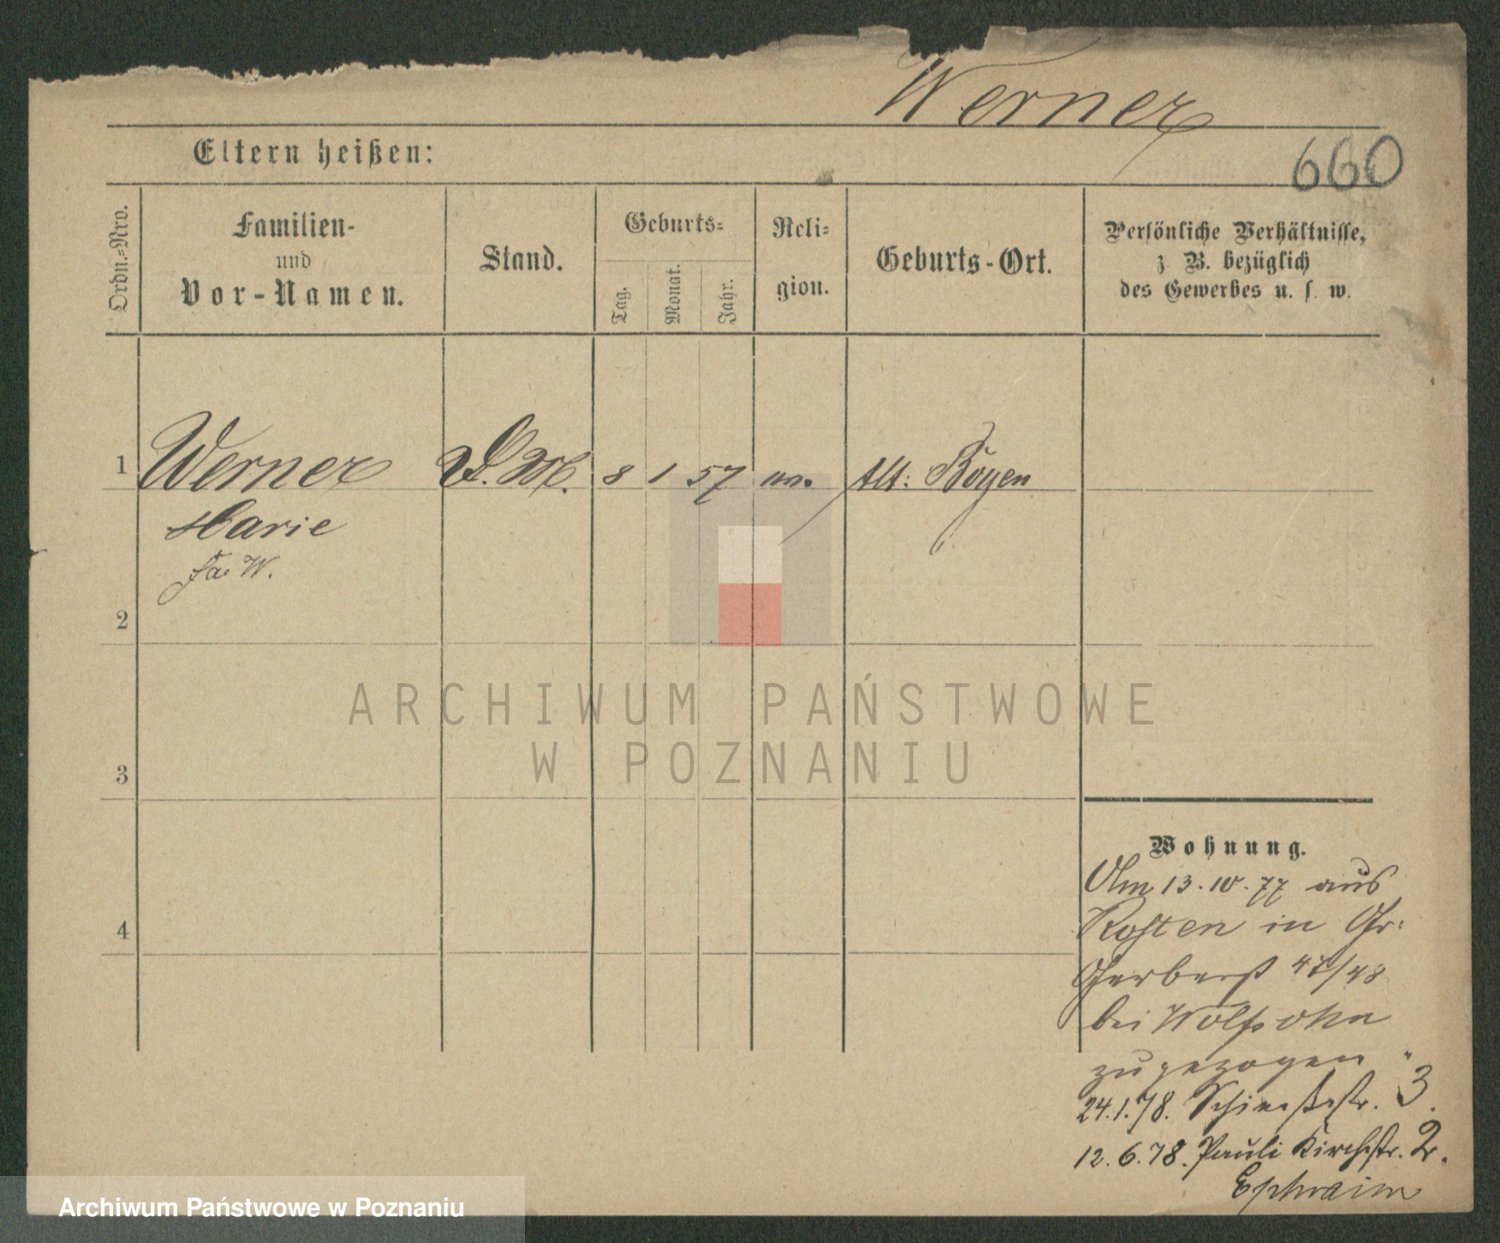 Werner
Eltern heißen:
660
Ordn.-Nro.
Familien-
und
Vor-Namen.
Stand.
Geburts-
Tag.
Monat.
Jahr.
Reli-
gion.
Geburts-Ort.
Persönliche Verhältnisse,
z B. bezüglich
des Gewerbes u. s. w.
1 Werner D. M. 8 1 57 Alt: Boyen
Marie
2
3
4
ARCHIWUM PAŃSTWOWE
W POZNANIU
Wohnung.
Am 13.10.77 aus
Kosten in Gr:
Gerberst 47/48
bei Wolfsohn
zugezogen
24.1.78. 3.
12.6.78. Pauli Kirchstr. 2.
Ephraim
Archiwum Państwowe w Poznaniu